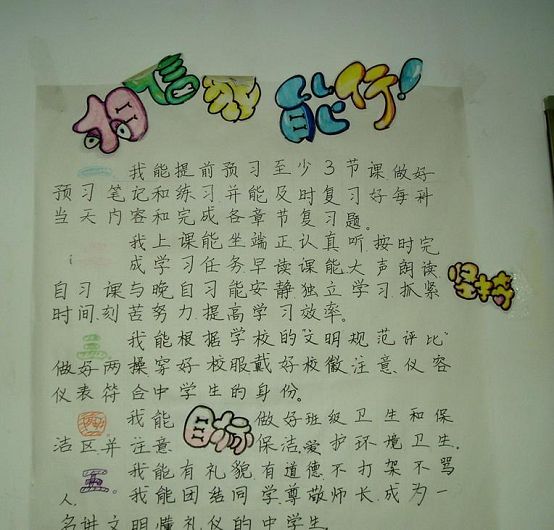 相信我能行!
一 我能提前预习至少3节课做好
预习笔记和练习并能及时复习好每科
当天内容和完成各章节复习题。
二 我上课能坐端正认真听按时完
成学习任务早读课能大声朗读
自习课与晚自习能安静独立学习抓紧
时间刻苦努力提高学习效率。
坚持
三 我能根据学校的文明规范评比
做好两操穿好校服戴好校徽注意仪容
仪表符合中学生的身份。
四 我能 目标 做好班级卫生和保
洁区并注意 保洁爱护环境卫生.
五 我能有礼貌有道德不打架不骂
人 我能团结同学尊敬师长成为一
名讲文明懂礼仪的中学生